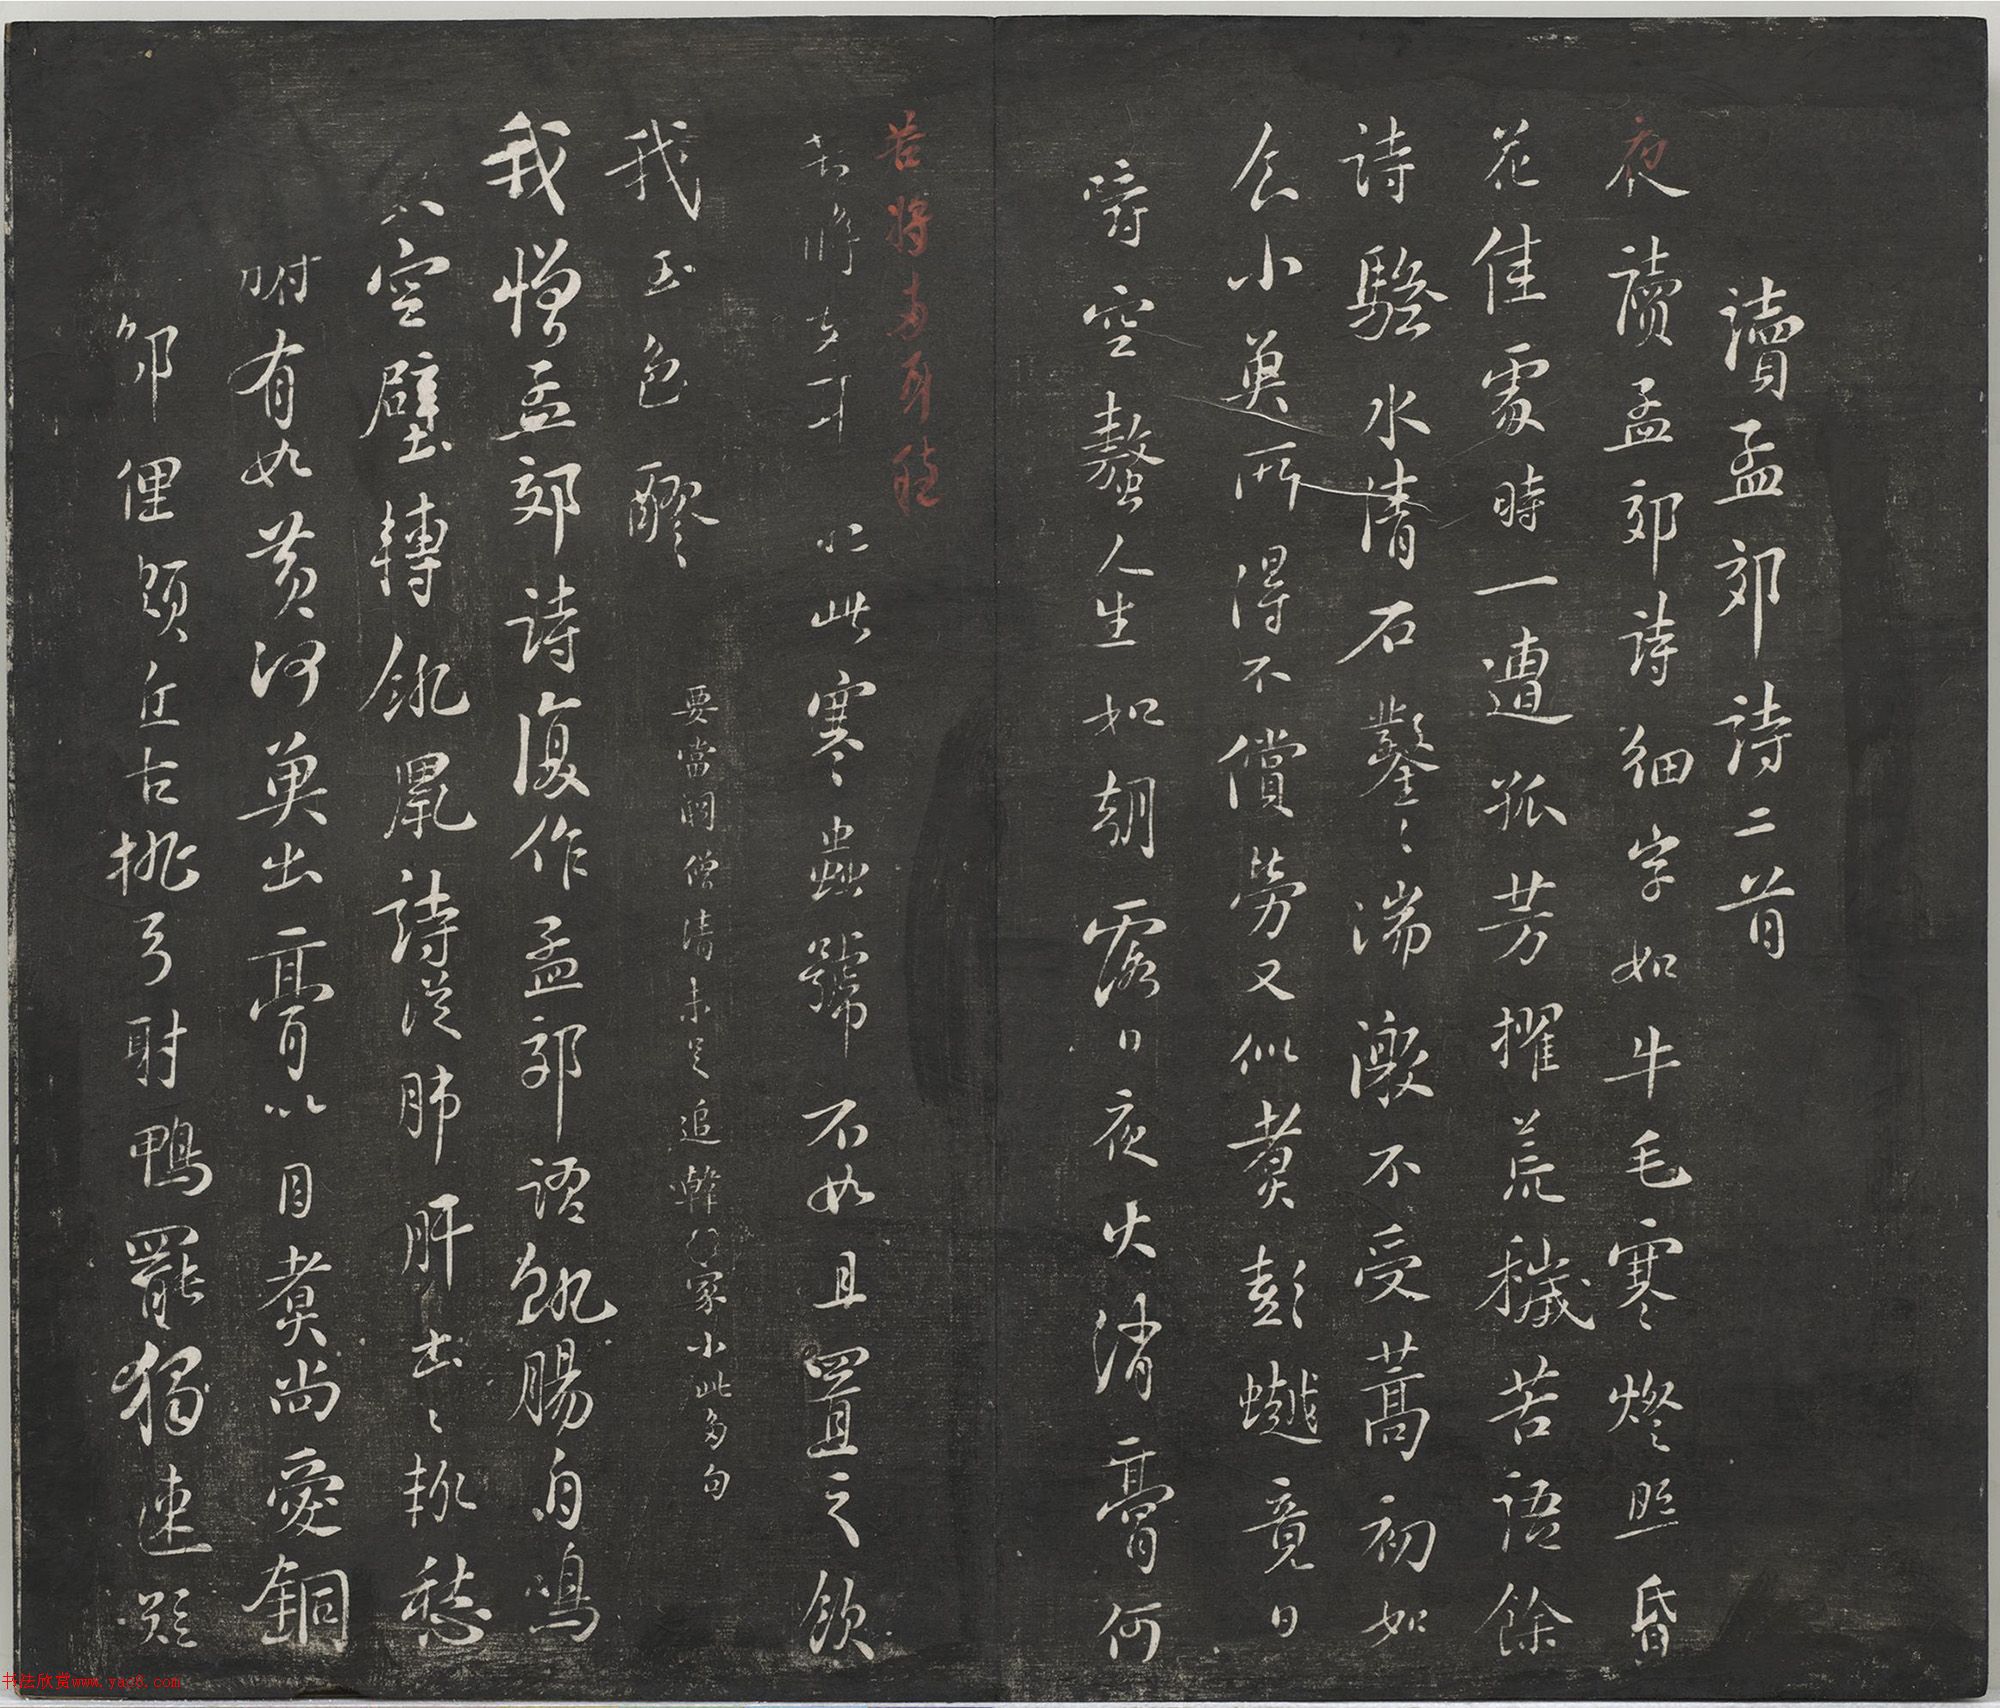 讀孟郊詩二首
夜讀孟郊詩細字如牛毛寒燈照昏
花佳處時一遭孤芳擢荒穢苦語餘
詩騷水清石鑿〻湍激不受篙初如
食小魚所得不償勞又似煮彭𧑅竟日
嚼空螯人生如朝露日夜火消膏何
苦將兩耳聽
苦將兩耳聽此寒蟲號不如且置之飲
我玉色醪
要當鬭僧清未足追韓豪少此兩句
我憎孟郊詩復作孟郊語飢腸自鳴
喚空壁轉飢鼠詩從肺肝出〻輒愁
肺有如黃河魚出膏以自煮尚愛銅
斗俚頗近古桃弓射鴨罷獨速短
书法欣赏www.yac8.com